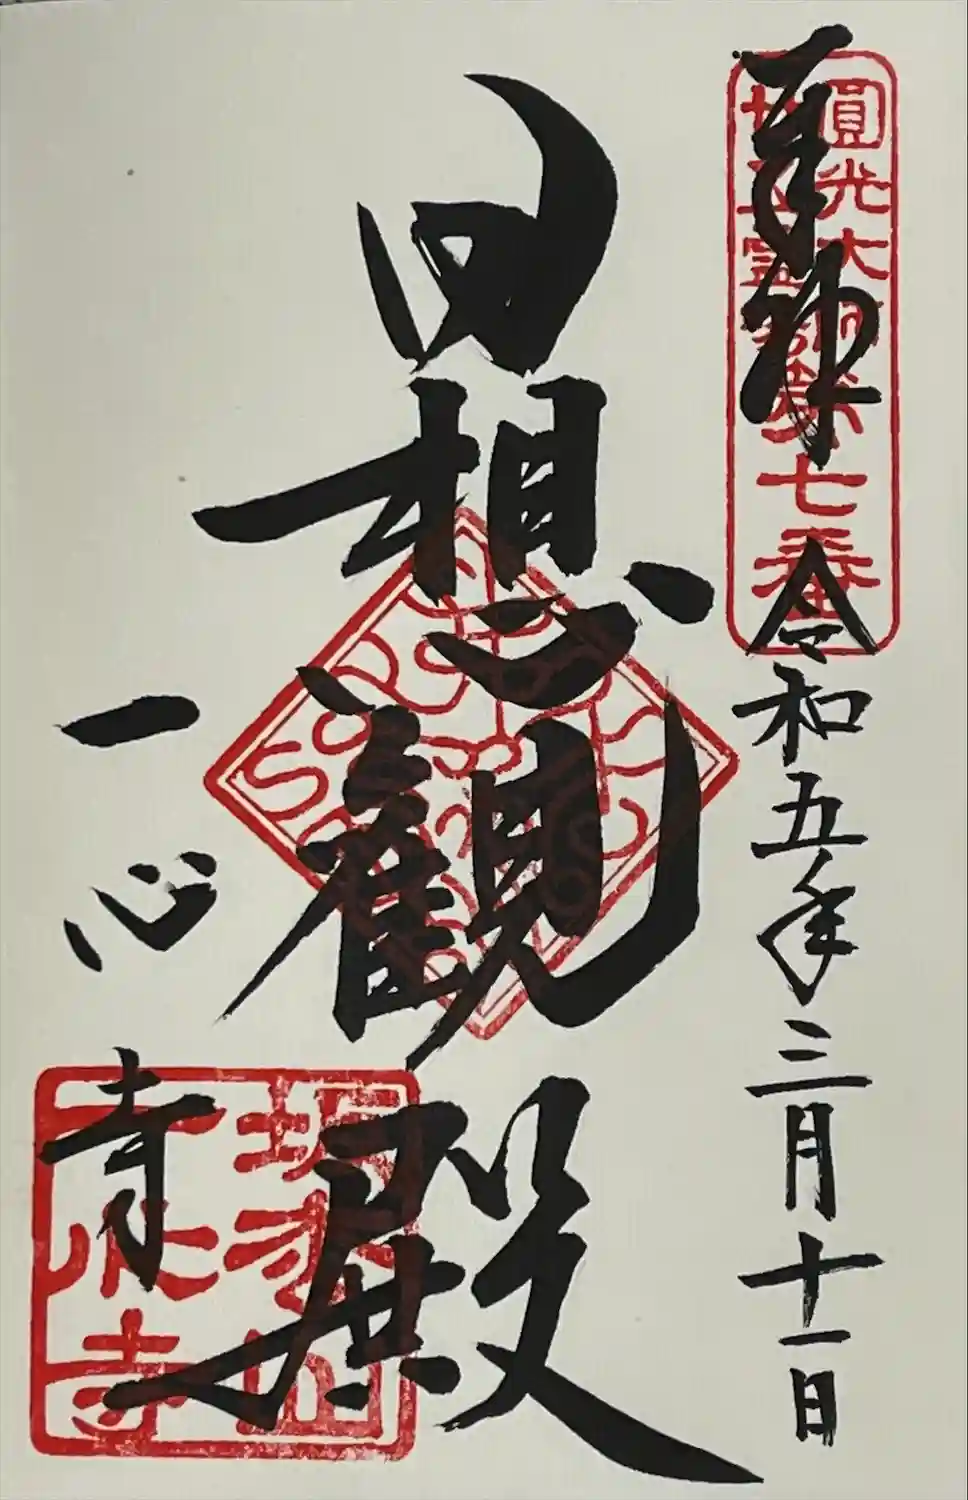 奉拝
令和五年三月十一日
圓光大師
廿五霊場第七番
日想観殿
一心寺
坂松山
一心寺